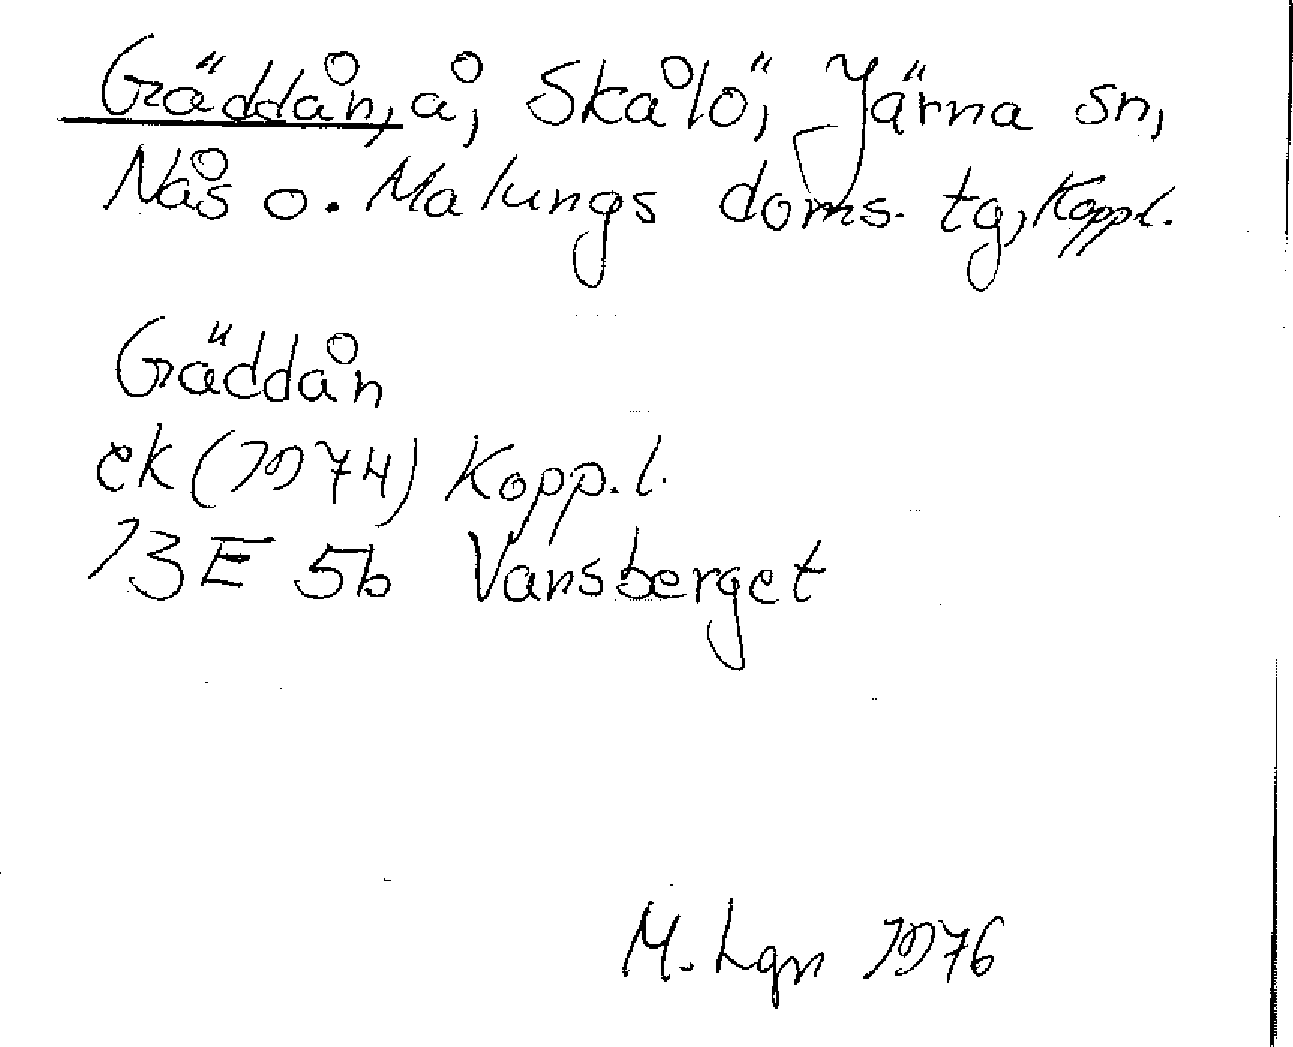 Gäddån, å, Skålö, Järna sn,
Nås o. Malungs doms. tg, Kopp.l.
Gäddån
ek (1974) Kopp.l.
13E 5b Vansberget
M. Lgn 1976